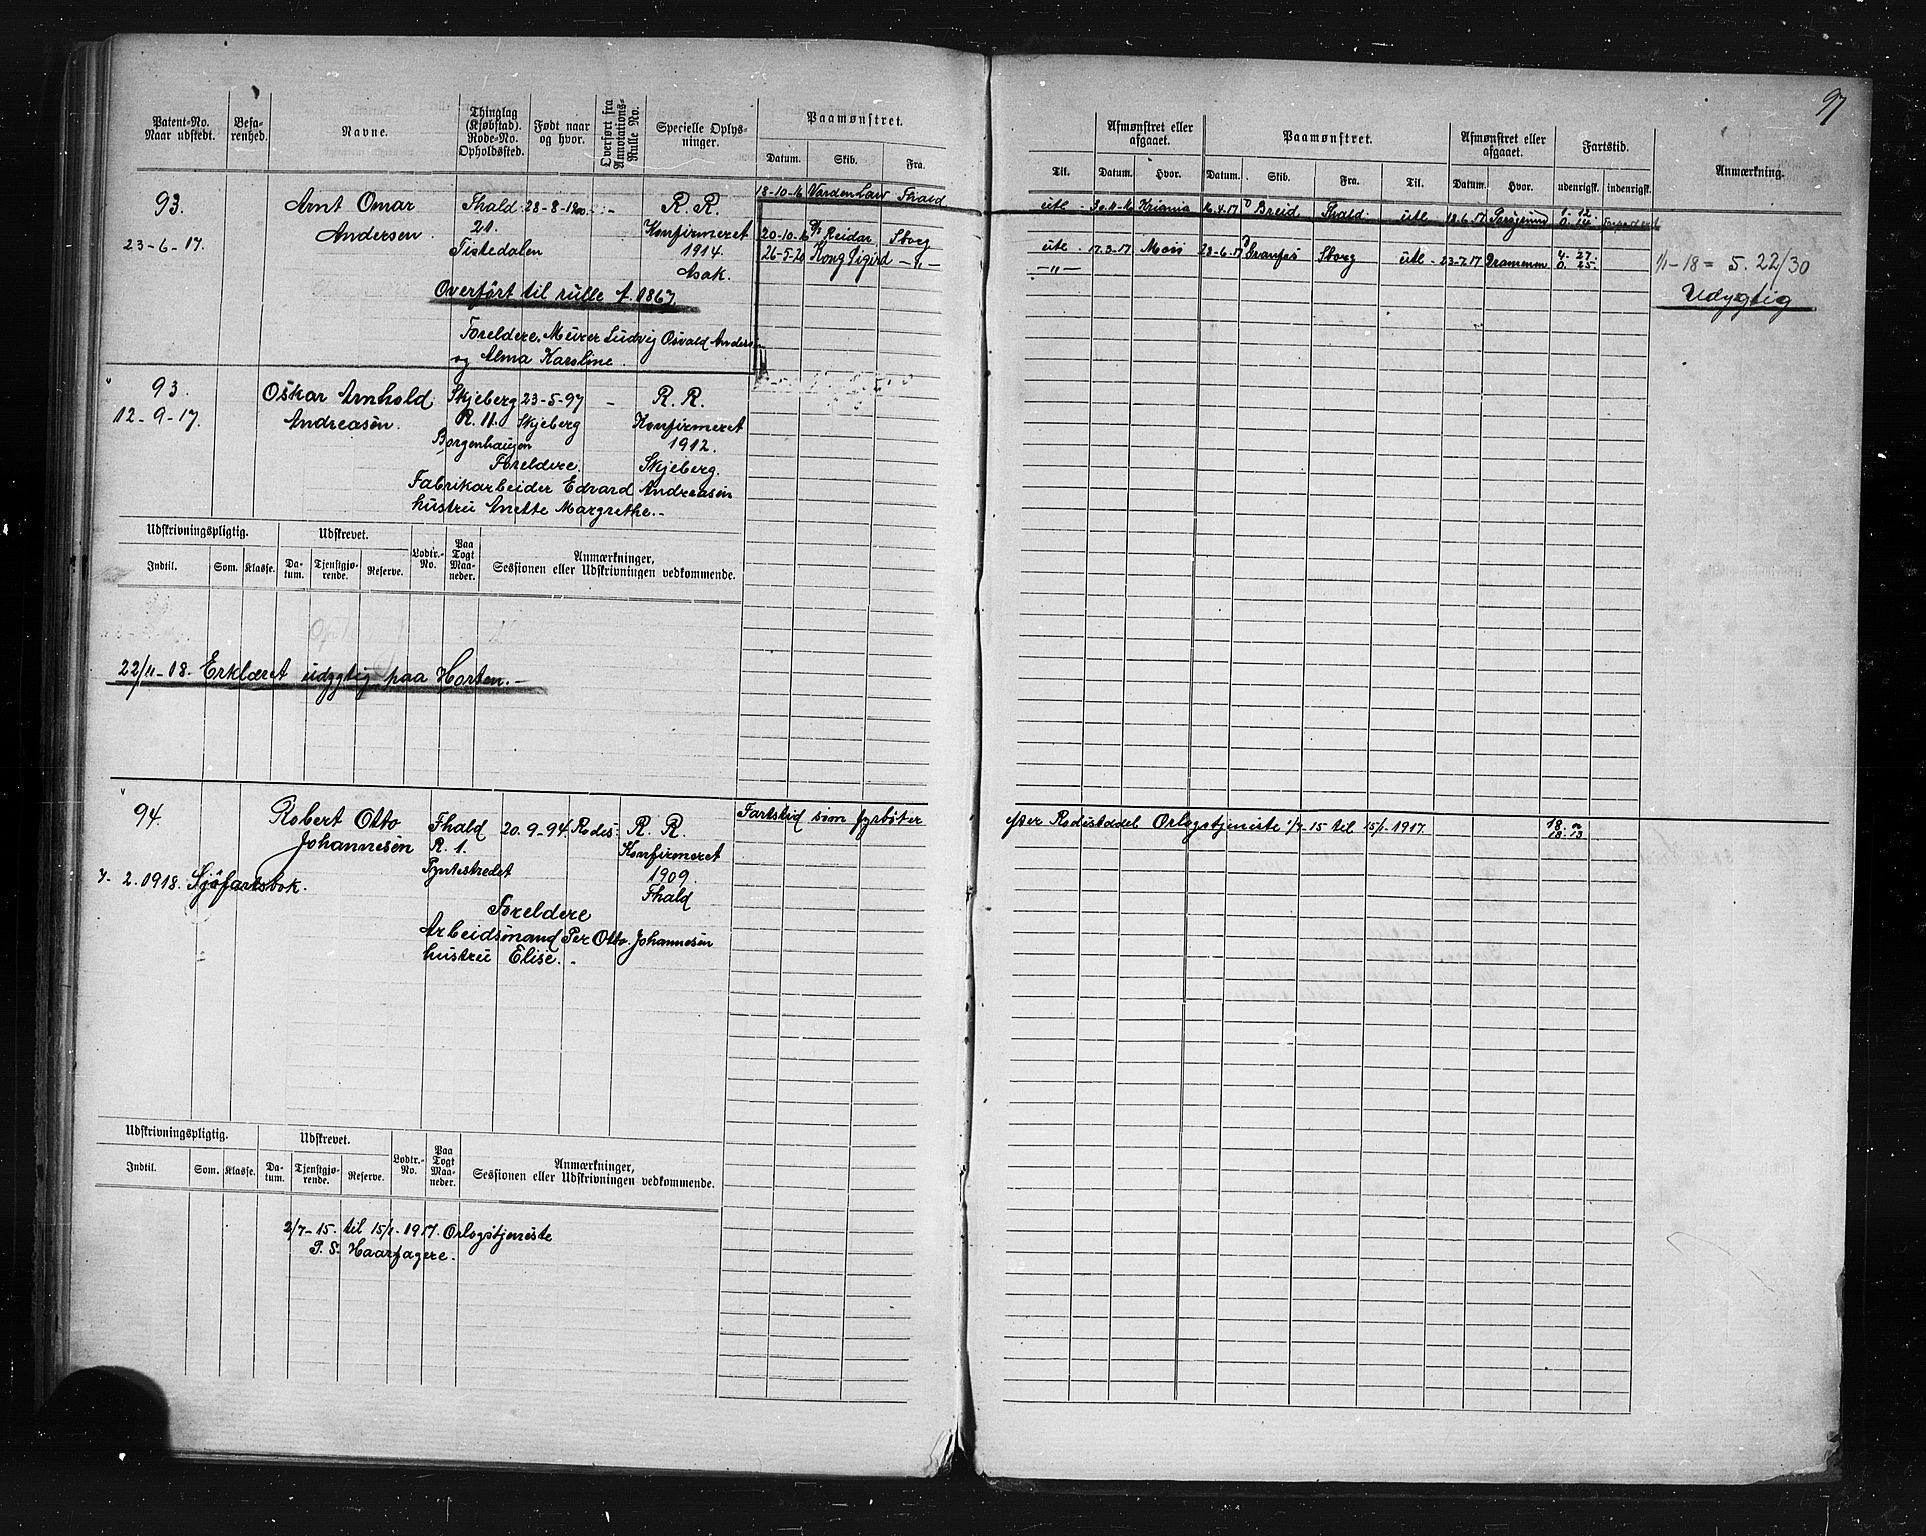 97
Patent-No. Naar udstedt.
Befa-renhed.
Navne.
Thinglag (Kjøbstad). Rode-No. Opholdssted.
Født naar og hvor.
Overført fra Annotations-Rulle No.
Specielle Oplys-ninger.
Paamønstret.
Datum. Skib. Fra.
Til.
Afmønstret eller afgaaet.
Datum. Hvor.
Paamønstret.
Datum. Skib. Fra. Til.
Afmønstret eller afgaaet.
Datum. Hvor.
Fartstid.
udenrigsk. indenrigsk.
Anmærkning.
93.
23-6-17.
Arnt Omar
Andersen
Fhald
21.
Tistedalen
28-8-1900
R. R.
Konfirmeret
1914
Asak.
18-10-16 Varden Law Fhald
20-10-16 Reidar Sborg
26-5-20 Kong Sigurd -"-
utl. 30.11-16 Kriania 16.4.17 Breid Fhald. utl 18.6.17
utl. 17.3-17 Moss 23-6-17 Granfos Sborg utl 23-7.17 Drammen 4. 27.
-"- 0. 25.
1/1-18 = 5. 22/30
Udygtig
Overført til rulle A. 1867.
Foreldre. Murer Ludvig Osvald Andersen
og Alma Karoline.
93.
12-9-17.
Oskar Arnhold
Andreasen.
Skjeberg
R. 11.
Borgenhaugen
23-5-97
Skjeberg
-
R. R.
Konfirmeret
1912.
Skjeberg.
Foreldre.
Fabrikarbeider Edvard Andreasen
hustru Anette Margrethe.-
Udskrivningspligtig.
Indtil. Som. Klasse.
Udskrevet.
Da-tum. Tjenstgjø-rende. Reserve.
Lodtr.-No.
Paa Togt Maa-neder.
Anmærkninger,
Sessionen eller Udskrivningen vedkommende.
22/11-18. Erklæret udygtig paa Horten.-
94
Robert Otto
Johannesen
Fhald
R. 1.
Pyntestredet
20.9-94.
Rødes:
R. R
Konfirmeret
1909.
Fhald
Fartstid som fyrbøter
efter Rodistaddel Orlogstjeneste 1/7-15 til 15/1-1917.
2.1918. Sjøfartsbok.
Foreldre
Arbeidsmand Per Otto Johannesen
hustru Elise.-
Udskrivningspligtig.
Indtil. Som. Klasse.
Udskrevet.
Da-tum. Tjenstgjø-rende. Reserve.
Lodtr.-No.
Paa Togt Maa-neder.
Anmærkninger,
Sessionen eller Udskrivningen vedkommende.
2/7-15. til 15/1-1917. Orlogstjeneste
P. S. Haarfagere.